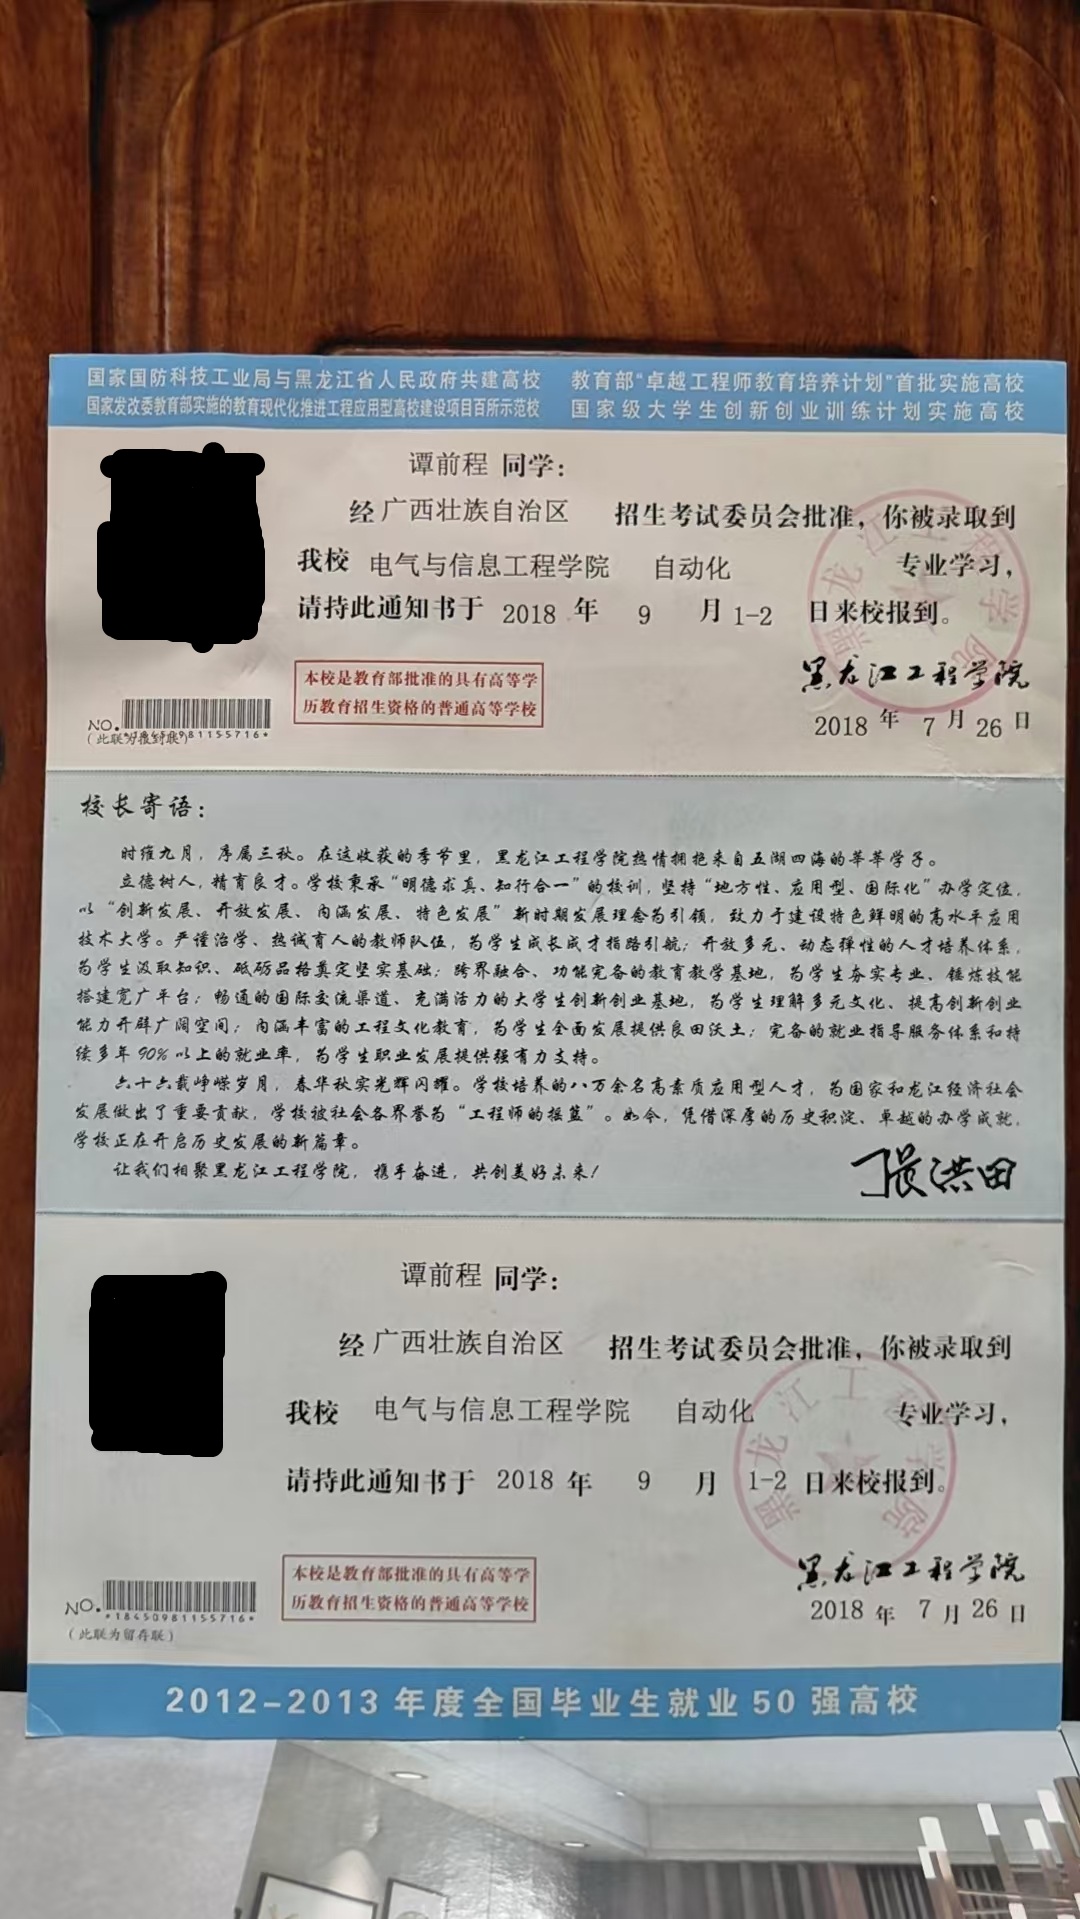 国家国防科技工业局与黑龙江省人民政府共建高校 教育部“卓越工程师教育培养计划”首批实施高校
国家发改委教育部实施的教育现代化推进工程应用型高校建设项目百所示范校 国家级大学生创新创业训练计划实施高校
谭前程 同学：
经 广西壮族自治区 招生考试委员会批准，你被录取到
我校 电气与信息工程学院 自动化 专业学习，
请持此通知书于 2018 年 9 月 1-2 日来校报到。
本校是教育部批准的具有高等学
历教育招生资格的普通高等学校
黑龙江工程学院
2018 年 7 月 26 日
NO.
（此联为报到联）
校长寄语：
时维九月，序属三秋。在这收获的季节里，黑龙江工程学院热情拥抱来自五湖四海的莘莘学子。
立德树人，精育良才。学校秉承“明德求真、知行合一”的校训，坚持“地方性、应用型、国际化”办学定位，
以“创新发展、开放发展、内涵发展、特色发展”新时期发展理念为引领，致力于建设特色鲜明的高水平应用
技术大学。严谨治学、热诚育人的教师队伍，为学生成长成才指路引航；开放多元、动态弹性的人才培养体系，
为学生汲取知识、砥砺品格奠定坚实基础；跨界融合、功能完备的教育教学基地，为学生夯实专业、锤炼技能
搭建宽广平台；畅通的国际交流渠道、充满活力的大学生创新创业基地，为学生理解多元文化、提高创新创业
能力开辟广阔空间；内涵丰富的工程文化教育，为学生全面发展提供良田沃土；完备的就业指导服务体系和持
续多年90%以上的就业率，为学生职业发展提供强有力支持。
六十六载峥嵘岁月，春华秋实光辉闪耀。学校培养的八万余名高素质应用型人才，为国家和龙江经济社会
发展做出了重要贡献，学校被社会各界誉为“工程师的摇篮”。如今，凭借深厚的历史积淀、卓越的办学成就，
学校正在开启历史发展的新篇章。
让我们相聚黑龙江工程学院，携手奋进，共创美好未来！
张洪田
谭前程 同学：
经 广西壮族自治区 招生考试委员会批准，你被录取到
我校 电气与信息工程学院 自动化 专业学习，
请持此通知书于 2018 年 9 月 1-2 日来校报到。
黑龙江工程学院
本校是教育部批准的具有高等学
历教育招生资格的普通高等学校
黑龙江工程学院
2018 年 7 月 26 日
NO.
*18450981155716*
（此联为留存联）
2012-2013 年度全国毕业生就业 50 强高校